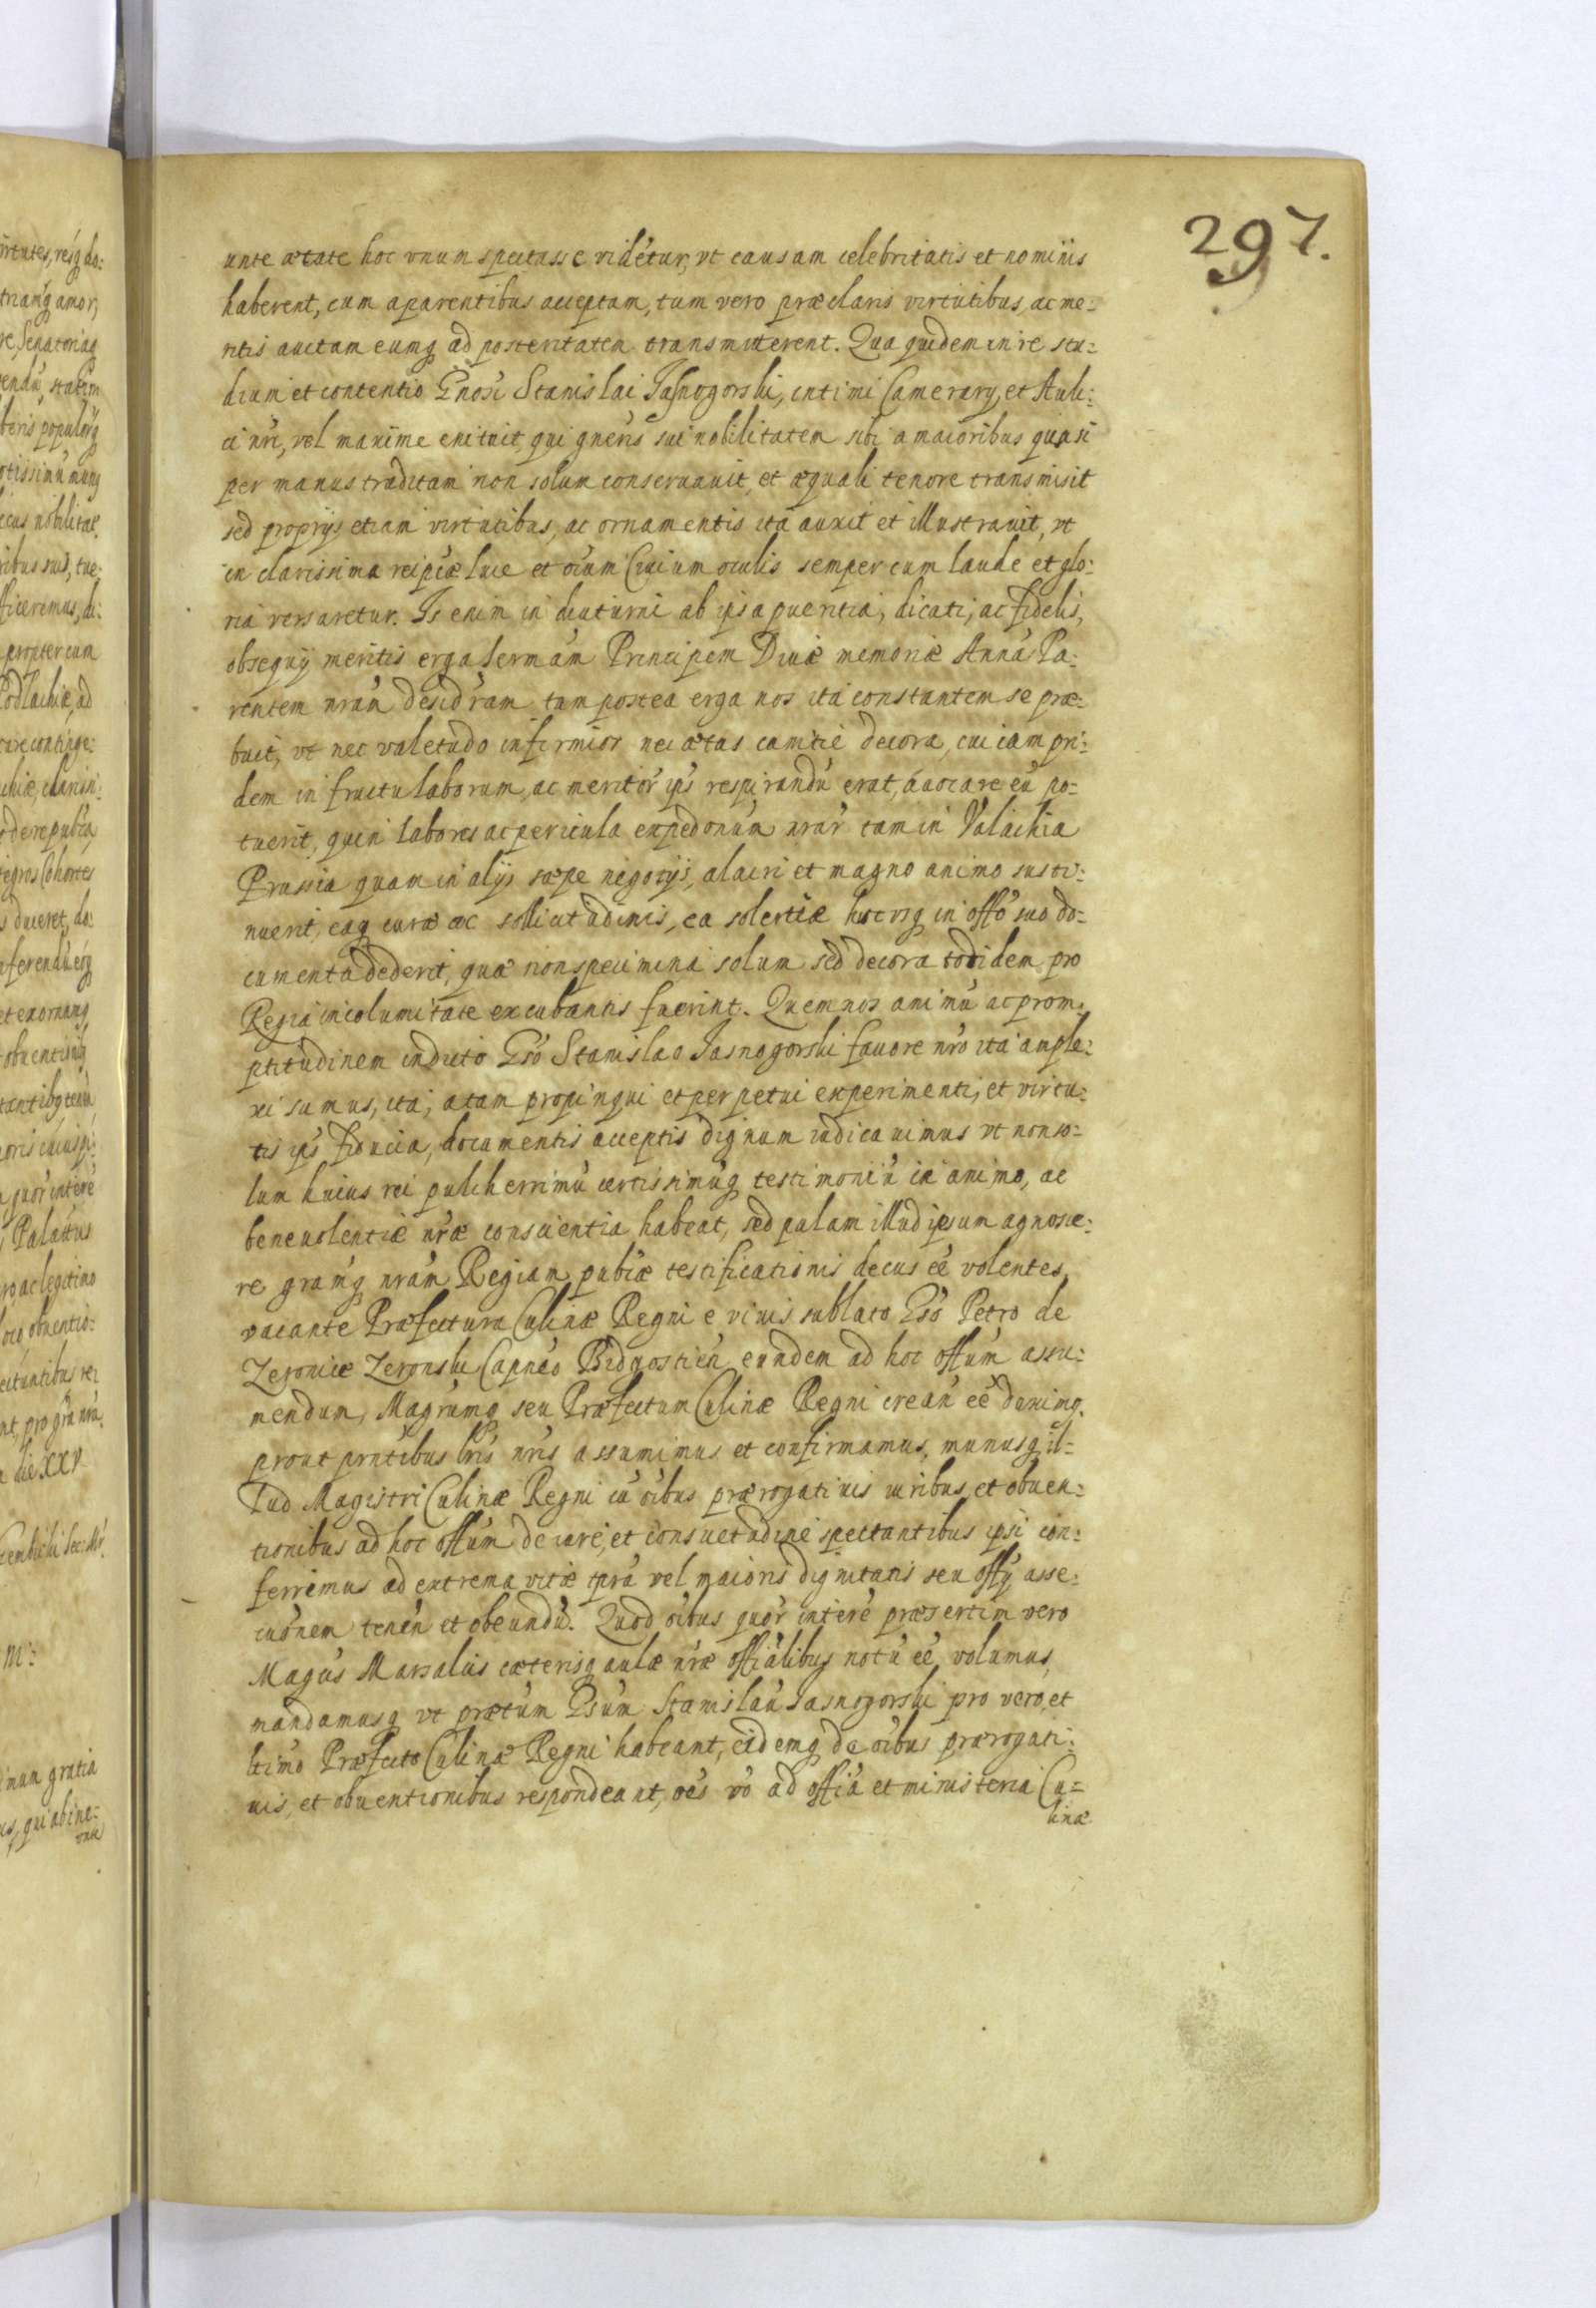 297.
unte ætate hoc vnum spectasse videtur, vt causam celebritatis et nominis
haberent, cum a parentibus acceptam, tum vero præclaris virtutibus, ac me:
ritis auctam eumq ad posteritatem transmitterent. Qua quidem in re stu:
dium et contentio Gnosi Stanislai Jasnogorski, intimi Camerarij, et Auli:
ci nri, vel maxime enituit, qui gneris sui nobilitatem sibi a maioribus quasi
per manus traditam non solum conseruauit, et æquali tenore transmisit
sed proprijs etiam virtutibus, ac ornamentis ita auxit et illustrauit, vt
in clarissima reipcæ luce et oium Ciuium oculis semper cum laude et glo:
ria versaretur. Is enim in diuturni ab ipsa pueritia, dicati, ac fidelis,
obsequij meritis erga Sermam Principem Diuæ memoriæ Annã Pa:
rentem nram desidram tam postea erga nos ita constantem se præ:
buit, vt nec valetudo infirmior nec ætas canitie decora, cui iam pri:
dem in fructu laborum, ac meritor ips respirandu erat, auocare eu po:
tuerit, quin labores ac pericula expedonum nrar tam in Valachia
Prussia quam in alijs sæpe negotijs, alacri et magno animo susti:
nuerit, eaq curæ ac sollicitudinis, ea solertiæ hucusq in offo suo do:
cumenta dederit, quæ non specimina solum sed decora todidem pro
Regia incolumitate excubantis fuerint. Quem nos animu ac prom:
ptitudinem in dicto Gso Stanislao Jasnogorski fauore nro ita ample:
xi sumus, ita, a tam propinqui et perpetui experimenti, et virtu:
tis ips fiducia, documentis acceptis dignum iudicauimus vt non so:
lum huius rei pulcherrimu certissimuq testimoniu in animo, ac
beneuolentiæ nræ conscientia habeat, sed palam illud ipsum agnosce:
re gramq nram Regiam pubcæ testificationis decus eê volentes,
vacante Præfectura Culinæ Regni e viuis sublato Gso Petro de
Zeronice Zeronski Capneo Bidgostien eundem ad hoc offum assu:
mendum, Magrumq seu Præfectum Culinæ Regni crean eê duximq.
prout prntibus lris nris assumimus et confirmamus, munusq il:
lud Magistri Culinæ Regni cu oibus prærogatiuis iuribus, et obuen:
tionibus ad hoc offum de iure, et consuetudine spectantibus ipsi con:
ferrimus ad extrema vitæ tpra vel maioris dignitatis seu offij asse:
cuonem tenen et obeundu. Quod oibus quor intere præsertim vero
Magcis Marsalcis cæterisq aulæ nræ offialibus notu eê volumus,
mandamusq vt prætum Gsum Stanislau Jasnogorski pro vero, et
ltimo Præfecto Culinæ Regni habeant, eidemq de oibus prærogati:
uis, et obuentionibus respondeant, oes vo ad offia et ministeria Cu=
linæ